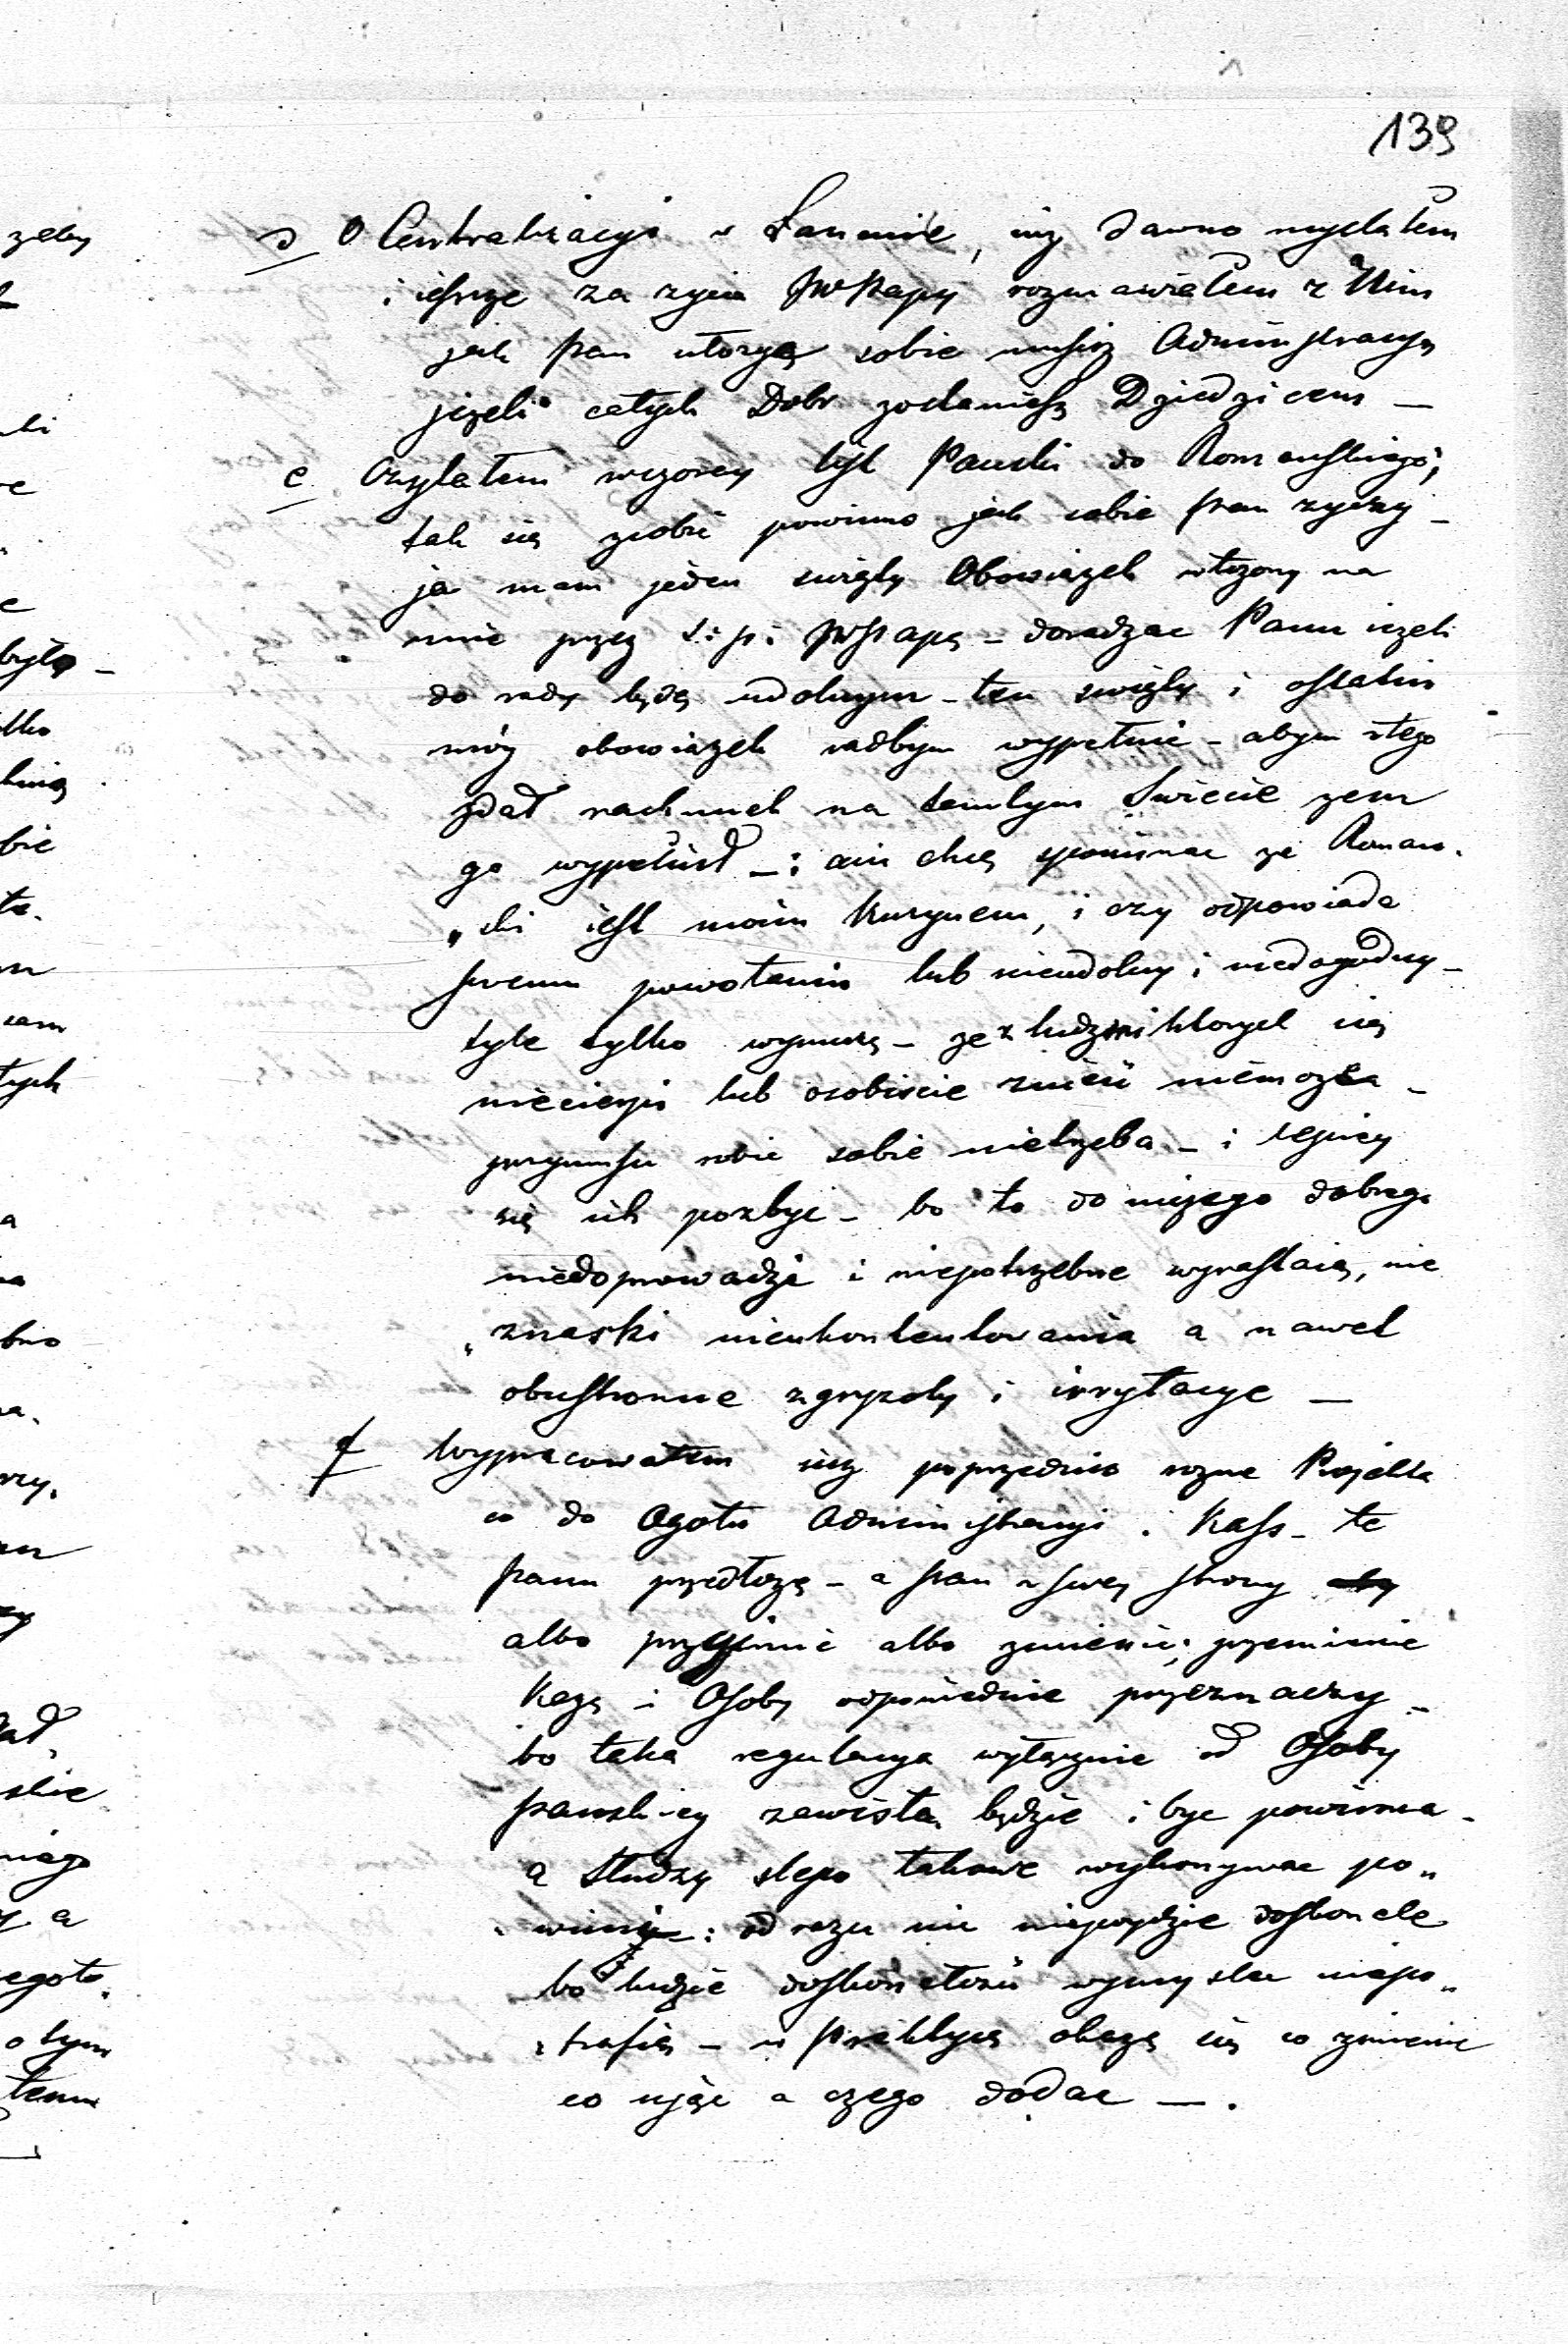 139
d O Centralizacyi w Łancucie, iuż dawno myslałem
i ieszcze za życia JWPapy rozmawiałem z Nim
jak Pan ułożyć sobie musisz Administracyą
jeżeli całych Dobr zostaniesz Dziedzicem —
e Czytałem wczoray list Pański do Romanskiego;
tak się zrobić powinno jak sobie Pan życzy –
ja mam jeden święty Obowiązek włożony na
mnie przez ś: p: JWPapę – doradzac Panu ieżeli
do rady będę udolnym – ten swięty i ostatni
móy obowiązek radbym wypełnic – abym z tego
zdał rachunek na tamtym Swiecie żem
go wypełnił – : ani chcę spominac że Roman-
„ski iest moim Kuzynem, i czy odpowiada
swemu powołaniu lub nieudolny i niedogodny –
tyle tylko wynurzę – że z ludzmi ktorych się
niecierpi lub osobiscie znieść niemożna –
przymusu robic sobie nietrzeba – i lepiey
się ich pozbyc – bo to do niczego dobrego
niedoprowadzi i niepotrzebne wyrastaią, nie
„znaski nieukontentowania a nawet
obustronne zgryzoty i irrytacye —
f Wypracowałem iuż poprzednio rożne Projekta
co do Ogołu Administracyi i Kass – te
Panu przedłożę – a Pan z swey strony
albo przyjmie albo zmienic, przemienic
każę i Osoby odpowiednie przeznaczy –
bo taka regulacya wyłącznie od Osoby
Pańskiey zawisłą będzie i byc powinna –
a Słudzy slepo takowe wykonywac po„
„winni – : od razu nic niepojdzie doskonale
bo ludzie doskonałości wymyslec niepo„
„trafią – w Praktyce okażę się co zmienic
co ująć a czego dodac — .
żeby
było –
tko
bie
ta.
sam
tych
a
bno
rzy,
skie
niego
y a
o tym